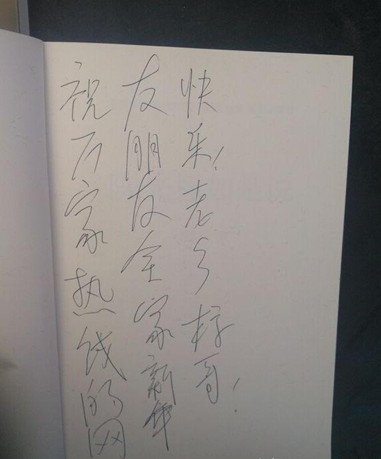 祝万家热线的网
友朋友全家新年
快乐!老乡哥!